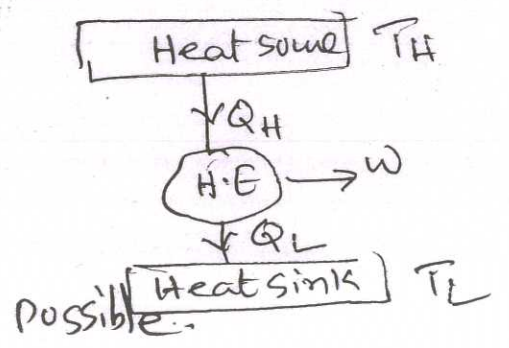 Heat source TH
QH
H.E W
QL
Heat sink TL
possible.